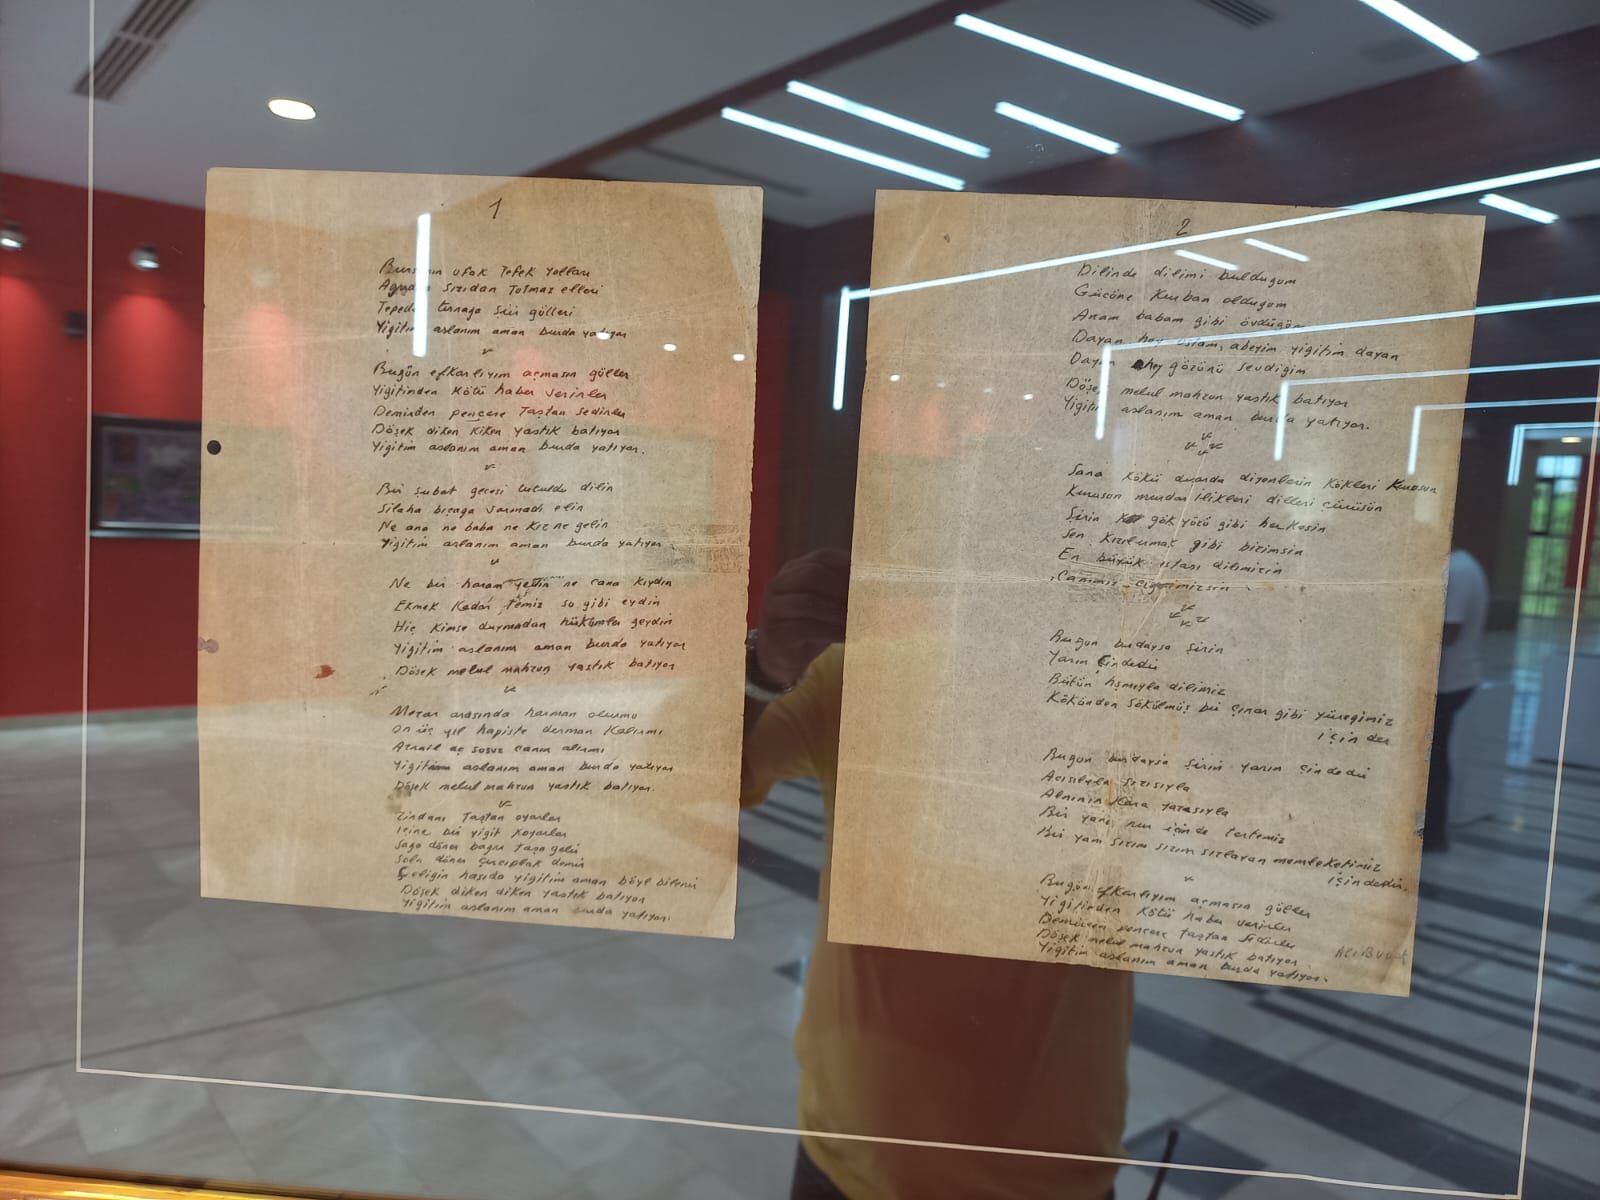 1
Bursanın ufak Tefek Yolları
Ağrıdan Sızıdan Tutmaz elleri
Tepeden tırnağa Şiir gülleri
Yiğitim aslanım aman burda yatıyor
Bugün efkarlıyım açmasın güller
Yiğitinden Kötü haber verirler
Demirden pencere Taştan Sedirler
Döşek diken Kiken yastık batıyor
Yiğitim aslanım aman burda yatıyor.
Bir Şubat gecesi tutuldu dilin
Silaha bıçağa varmadı elin
Ne ana ne baba ne Kız ne gelin
Yiğitim aslanım aman burda yatıyor
Ne bir haram yettin ne cana kıydın
Ekmek Kadar Temiz su gibi eydin
Hiç Kimse duymadan hükümler geydin
Yiğitim aslanım aman burda yatıyor
Döşek melul mahzun yastık batıyor
Mezar arasında harman olurmu
On üç yıl hapiste derman Kalırmı
Azrail aç susuz canın alırmı
Yiğitim aslanım aman burda yatıyor
Döşek melul mahzun yastık batıyor.
Zindanı Taştan oyarlar
içine bir yiğit Koyarlar
Sağa döner bağrı taşa gelir
Sola döner çırçıplak demir
Çeliğin hasıda yiğitim aman böyle bilenir
Döşek diken diken yastık batıyor
Yiğitim aslanım aman burda yatıyor.
2
Dilinde dilimi bulduğum
Gücüne Kurban olduğum
Anam babam gibi övdüğüm
Dayan hey aslam, abeyim yiğitim dayan
Dayan hey gözünü sevdiğim
Döşek melul mahzun yastık batıyor
Yiğitim aslanım aman burda yatıyor.
Sana Kökü dışarda diyenlerin Kökleri Kurusun
Kurusun murdar ilikleri dilleri çürüsün
Şirin gök yüzü gibi herkesin
Sen Kızılırmak gibi bizimsin
En büyük ustası dilimizin
Canımız ciğerimizsin
Bugün burdaysa Şirin
Yarın Çindedir
Bütün hışmıyla dilimiz
Kökünden Sökülmüş bir çınar gibi yüreğimiz
içinder
Bugün burdaysa Şirin yarın Çindedir
Acısıyla Sızısıyla
Alnının Kara yazısıyla
Bir yanı nur içinde tertemiz
Bir yanı sızım sızım sızlayan memleketimiz
içindedir.
Bugün efkarlıyım açmasın güller
Yiğitinden Kötü haber verirler
Demirden pencere taştan Sedirler
Döşek melul mahzun yastık batıyor
Yiğitim aslanım aman burda yatıyor.